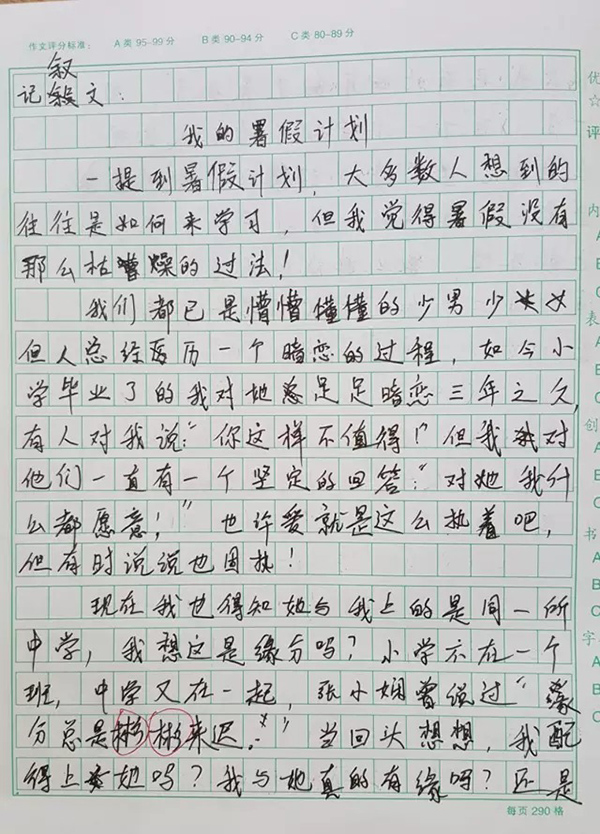 作文评分标准： A类95-99分 B类90-94分 C类80-89分
叙
记文：
我的暑假计划
一提到暑假计划，大多数人想到的
往往是如何来学习，但我觉得暑假没有
那么枯燥的过法！
我们都已是懵懵懂懂的少男少女
但人总经历一个暗恋的过程，如今小
学毕业了的我对她总足足暗恋三年之久，
有人对我说："你这样不值得！"但我对
他们一直有一个坚定的回答："对她我什
么都愿意！" 也许爱就是这么执着吧，
但有时说说也固执！
现在我也得知她与我上的是同一所
中学，我想这是缘分吗？小学不在一个
班，中学又在一起，张小娴曾说过"缘
分总是彬彬来迟。"当回头想想，我配
得上她吗？我与她真的有缘吗？还是
每页290格
优
☆
评
内
A
B
C
表
A
B
C
创
A
B
C
书
A
B
C
字
A
B
C